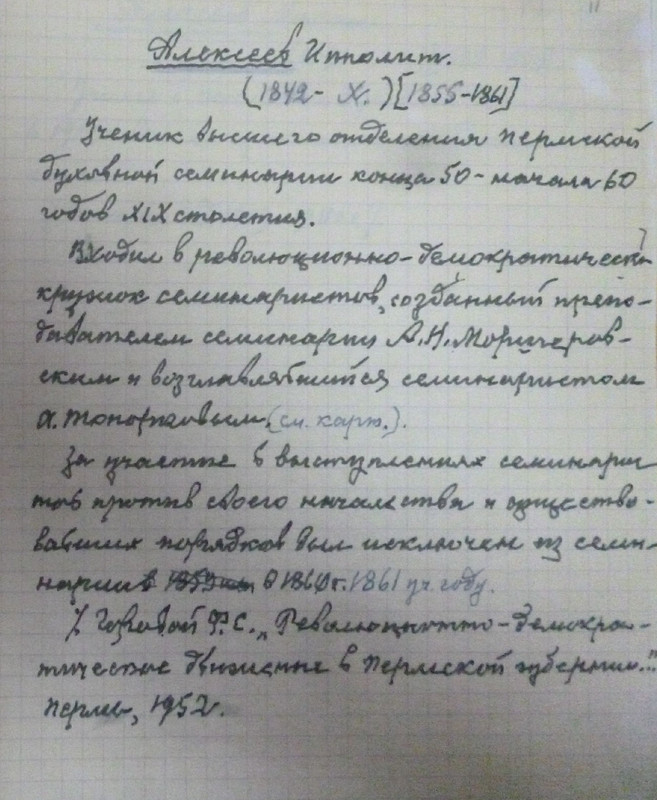 Алексеев Ипполит.
(1842 - X.) [1855-1861]
Ученик высшего отделения Пермской
духовной семинарии конца 50 - начала 60
годов XIX столетия.
Входил в революционно-демократическ
кружок семинаристов, созданный препо-
давателем семинарии А.И. Моригеров-
ским и возглавлявшийся семинаристом
А. Топорковым. (см. карт.).
За участие в выступлениях семинарис
тов против своего начальства и существо-
вавших порядков был исключен из семи-
нарии в 1860г. 1861 уч. году.
Ф.С. „Революционно-демокра-
тическое движение в Пермской губернии..."
Пермь, 1952.